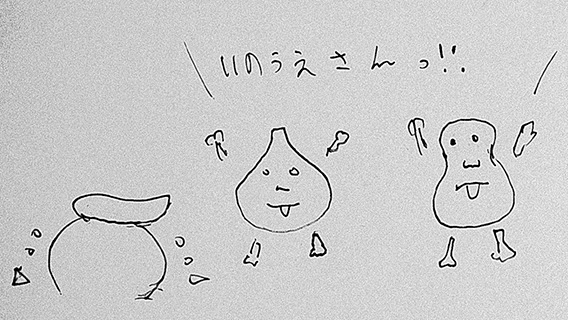 いのうえさんっ!!